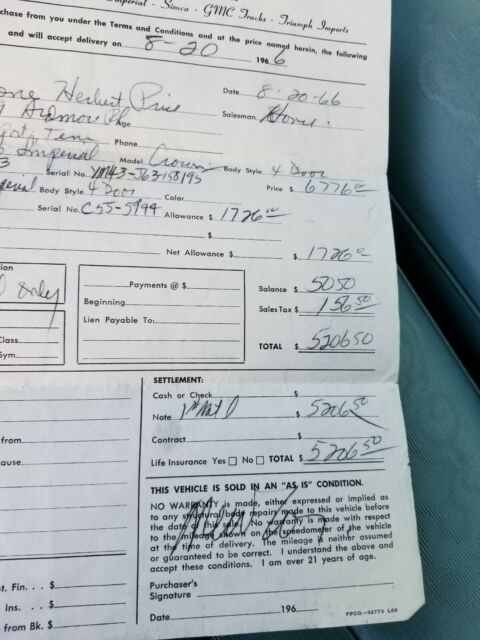 Imperial - Simca - GMC Trucks - Triumph Imports
chase from you under the Terms and Conditions and at the price named herein, the following
and will accept delivery on 8-20 1966
Herbert Price Date 8-20-66
Ardmore Pl Age Salesman
port Tenn Phone
Imperial Model Crown Body Style 4 Door
3 Serial No. YM43-J63158195 Price $ 6776 00
perial Body Style 4 Door Color
Serial No. C55-5944 Allowance $ 1726 00
$
Net Allowance $ $ 1726
ion
only
Payments @ $ Balance $ 5050
Beginning Sales Tax $ 156 50
Lien Payable To:
Class TOTAL $ 5206 50
Sym.
SETTLEMENT:
Cash or Check $
Note 1st Natl $ 5206 50
from
Contract $
ause
Life Insurance Yes No TOTAL $ 5206 50
THIS VEHICLE IS SOLD IN AN "AS IS" CONDITION.
NO WARRANTY is made, either expressed or implied as
to any structural/body repairs made to this vehicle before
the date of this sale. No warranty is made with respect
to the mileage shown on the speedometer of the vehicle
at the time of delivery. The mileage is neither assumed
or guaranteed to be correct. I understand the above and
accept these conditions. I am over 21 years of age.
t. Fin. . . $
Purchaser's
Signature
Ins. . . $
Date 196
from Bk. $
FPCO.-32773 L68